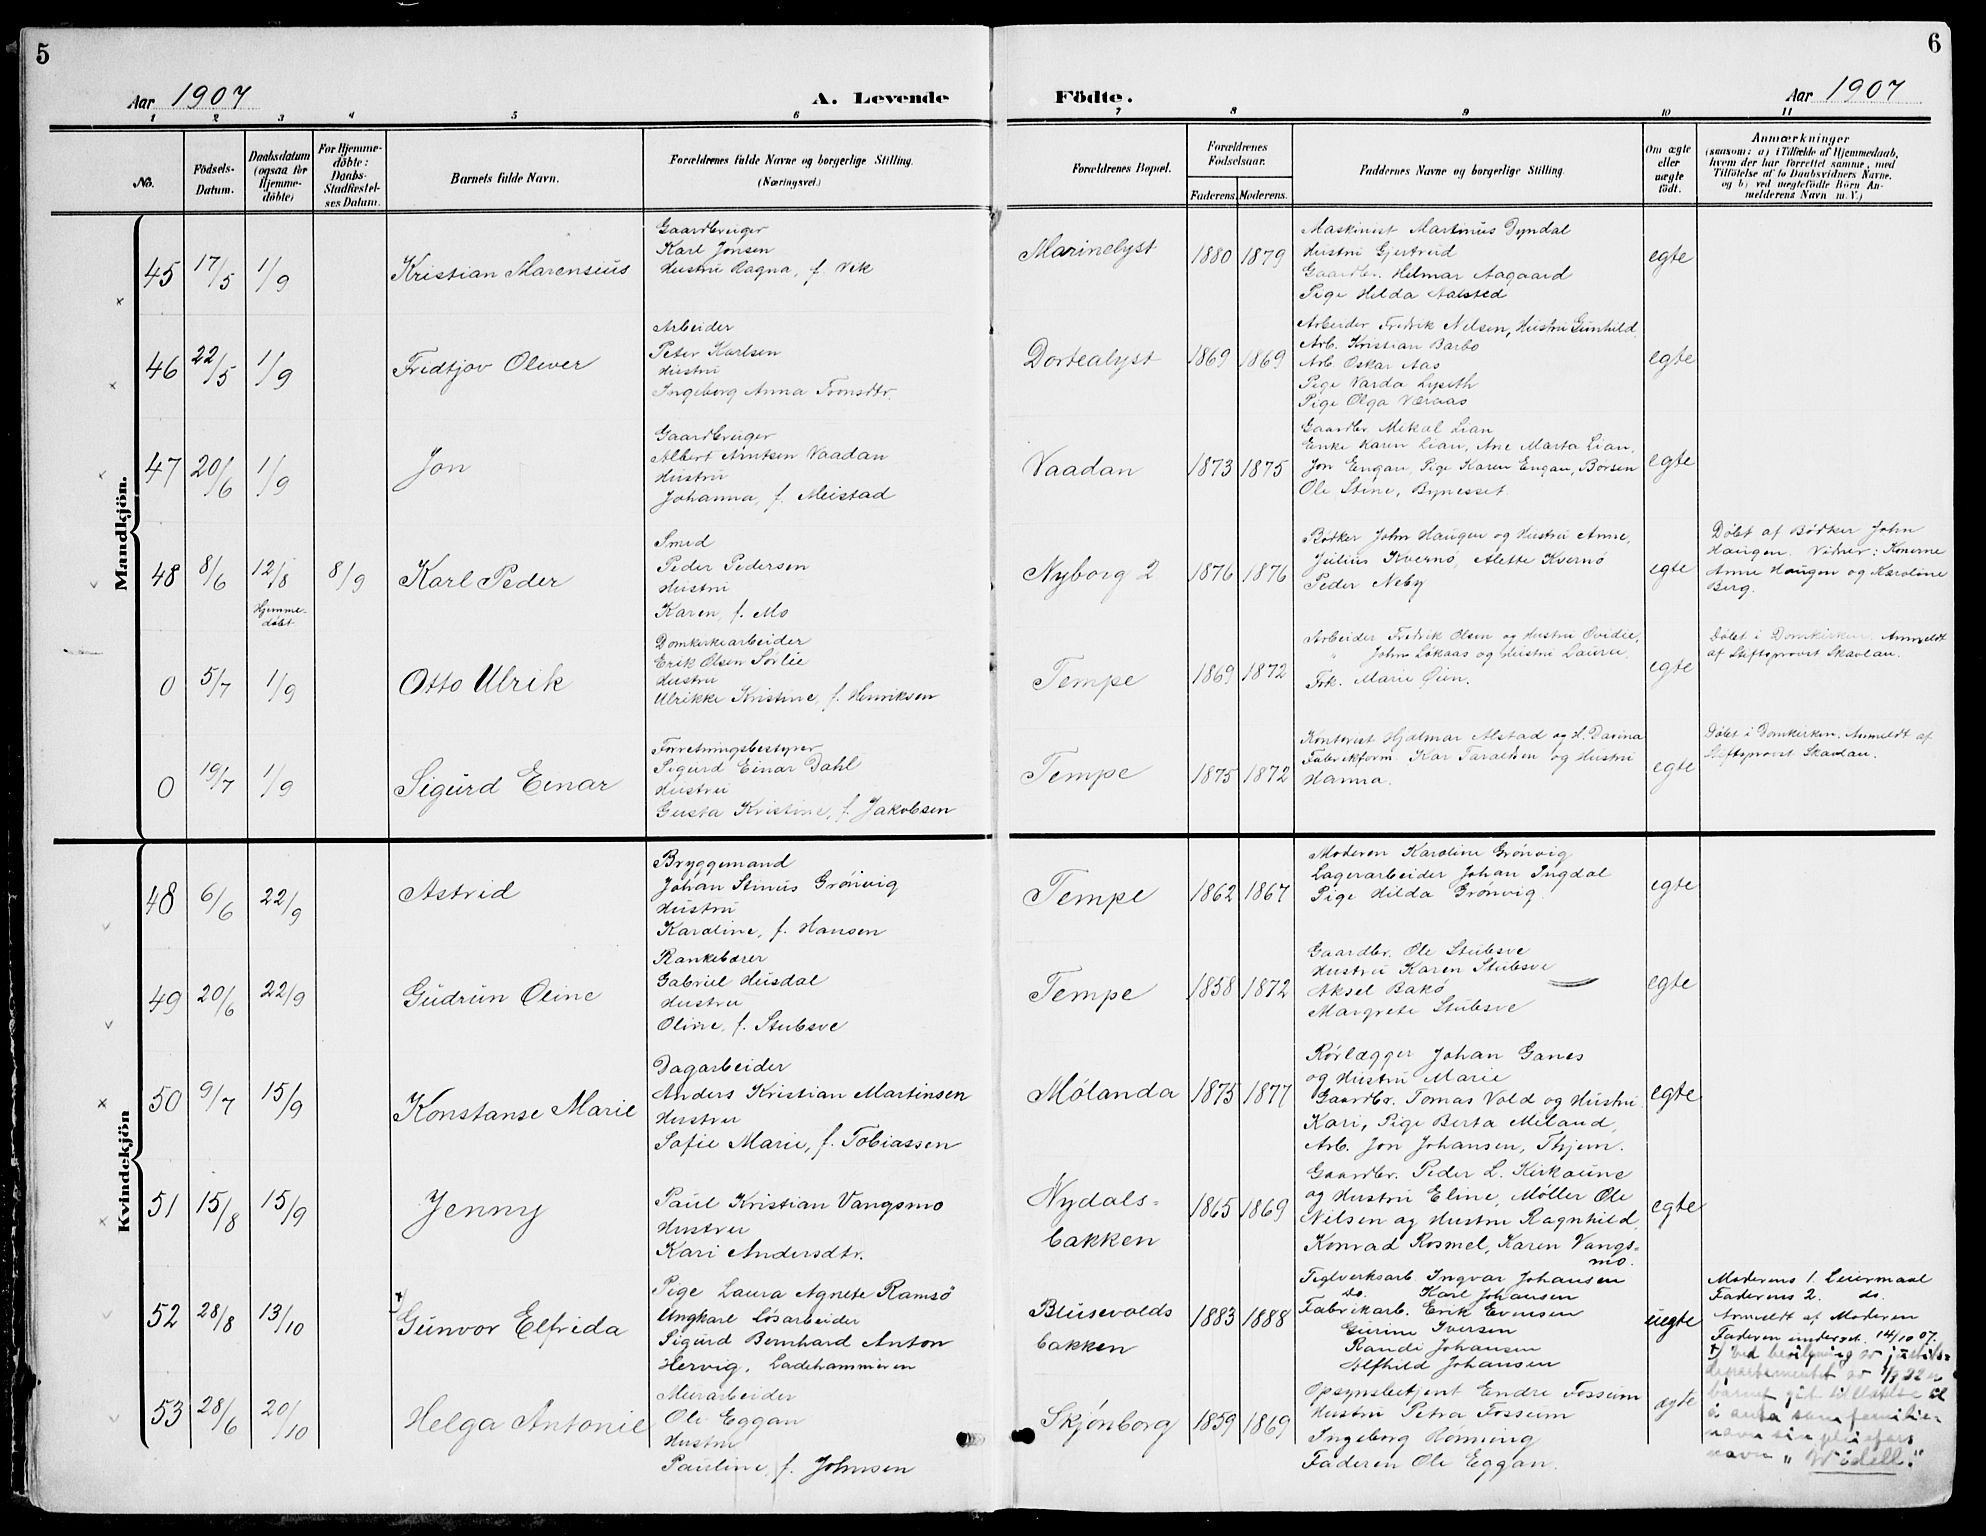 5
6
Aar 1907
A. Levende Födte.
Aar 1907
1 2 3 4 5 6 7 8 9 10 11
No.
Födsels-
Datum.
Daabsdatum
(ogsaa for
Hjemme-
döbte)
For Hjemme-
döbte:
Daabs-
Stadfæstel-
ses Datum.
Barnets fulde Navn.
Forældrenes fulde Navne og borgerlige Stilling.
(Næringsvei.)
Forældrenes Bopæl.
Forældrenes
Födselsaar.
Faderens. Moderens.
Faddernes Navne og borgerlige Stilling.
Om ægte
eller
uægte
födt.
Anmærkninger
(saasom: a) i Tilfælde af Hjemmedaab,
hvem der har forrettet samme, med
Tilföielse af to Daabsvidners Navne,
og b) ved uægtefödte Börn An-
melderens Navn m. V.)
Mandkjön.
45 17/5 1/9 Kristian Marensius
Gaardbruger
Karl Jonsen
Hustru Ragna, f. Vik
Marinelyst 1880 1879
Maskinist Martinus Dyndal
Hustru Gjertrud
Gaardbr. Helmar Aagaard
Pige Hilda Aalsted
egte
46 22/5 1/9 Fridtjov Olever
Arbeider
Peter Karlsen
Hustru
Ingeborg Anna Tronsdtr.
Dortealyst 1869 1869
Arbeider Fredrik Nelsen, Hustru Gunhild
Arb. Kristian Barbo
Arb. Oskar Aas
Pige Varda Lyseth
Pige Olga Væraas
egte
47 20/6 1/9 Jon
Gaardbruger
Albert Arntsen Vaadan
Hustru
Johanna, f. Meistad
Vaadan 1873 1875
Gaardbr. Mekal Lian
Enke Karen Lian, Ane Marta Lian,
Jon Engan, Pige Karen Engan, Børsen
Ole Stene, Bynesset.
egte
48 8/6 12/8 8/9 Karl Peder
Hjemme-
døbt
Smed
Peder Pedersen
Hustru
Karen, f. Mo
Nyborg 2 1876 1876
Bødker John Haugen og Hustru Anne,
Julius Kvernø, Alette Kvernø
Peder Neby
egte
Døbt af Bödker John
Haugen. Vidner: Konerne
Anne Haugen og Karoline
Berg.
0 5/7 1/9 Otto Ulrik
Domkirkearbeider
Erik Olsen Sørlie
Hustru
Ulrikke Kristine, f. Henriksen
Tempe 1869 1872
Arbeider Fredrik Olsen og Hustru Ovidie,
" John Løkaas og Hustru Laura,
Frk. Marie Øien.
egte
Døbt i Domkirken. Anmeldt
af Stiftsprovst Skavlan.
0 19/7 1/9 Sigurd Einar
Forretningsbestyrer
Sigurd Einar Dahl
Hustru
Gusta Kristine, f. Jakobsen
Tempe 1875 1872
Kontorist Hjalmar Alstad og H. Davina
Fabrikform. Kar Taraldsen og Hustru
Hanna.
egte
Døbt i Domkirken. Anmeldt af
Stiftsprovst Skavlan.
Kvindekjön
48 6/6 22/9 Astrid
Bryggemand
Johan Stinus Grønvig
Hustru
Karoline, f. Hansen
Tempe 1862 1867
Moderen Karoline Grønvig
Lagerarbeider Johan Ingdal
Pige Hilda Grønvig.
egte
49 20/6 22/9 Gudrun Oline
Rankebærer
Gabriel Husdal
Hustru
Oline, f. Stubsve
Tempe 1858 1872
Gaardbr. Ole Stubsve
Hustru Karen Stubsve
Aksel Bakø
Margrete Stubsve
egte
50 9/7 15/9 Konstanse Marie
Dagarbeider
Anders Kristian Martinsen
Hustru
Sofie Marie, f. Tobiassen
Mølanda 1875 1877
Rørlægger Johan Ganes
og Hustru Marie
Gaardbr. Tomas Vold og Hustru
Kari, Pige Berta Meland,
Arb. Jon Johansen, Thjem.
egte
51 15/8 15/9 Jenny
Paul Kristian Vangsmo
Hustru
Kari Andersdtr.
Nydals-
bakken
1865 1869
Gaardbr. Peder L. Kirkaune
og Hustru Eline, Møller Ole
Nilsen og Hustru Ragnhild,
Konrad Rosmel, Karen Vangs-
mo.
egte
52 28/8 13/10 Gunvor Elfrida
Pige Laura Agnete Ramsø
Ungkarl Løsarbeider
Sigurd Bernhard Anton
Hervig, Ladehammeren
Blusevolds
bakken
1883 1888
Teglverksarb. Ingvar Johansen
do. Karl Johansen
Fabrikarb. Erik Evensen
Gurine Iversen
Randi Johansen
Alfhild Johansen
uegte
Moderens 1. Leiermaal
Faderens 2. do.
Anmeldt af Moderen
Faderen underret. 14/10 07.
†) Ved bevilgning av justits-
departementet av 1/9 22 er
barnet git tilladelse til
å anta som familie-
navn sin pleiefars
navn „Widell".
53 28/6 20/10 Helga Antonie
Murarbeider
Ole Eggan
Hustru
Pauline, f. Johnsen
Skjønborg 1859 1869
Opsynsbetjent Endre Fossum
Hustru Petra Fossum
Ingeborg Rønning
Faderen Ole Eggan.
ægte